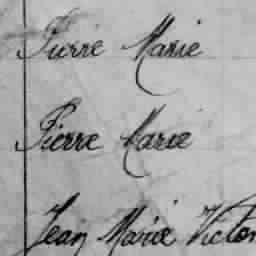 Pierre Marie
Pierre Marie
Jean Marie Victor